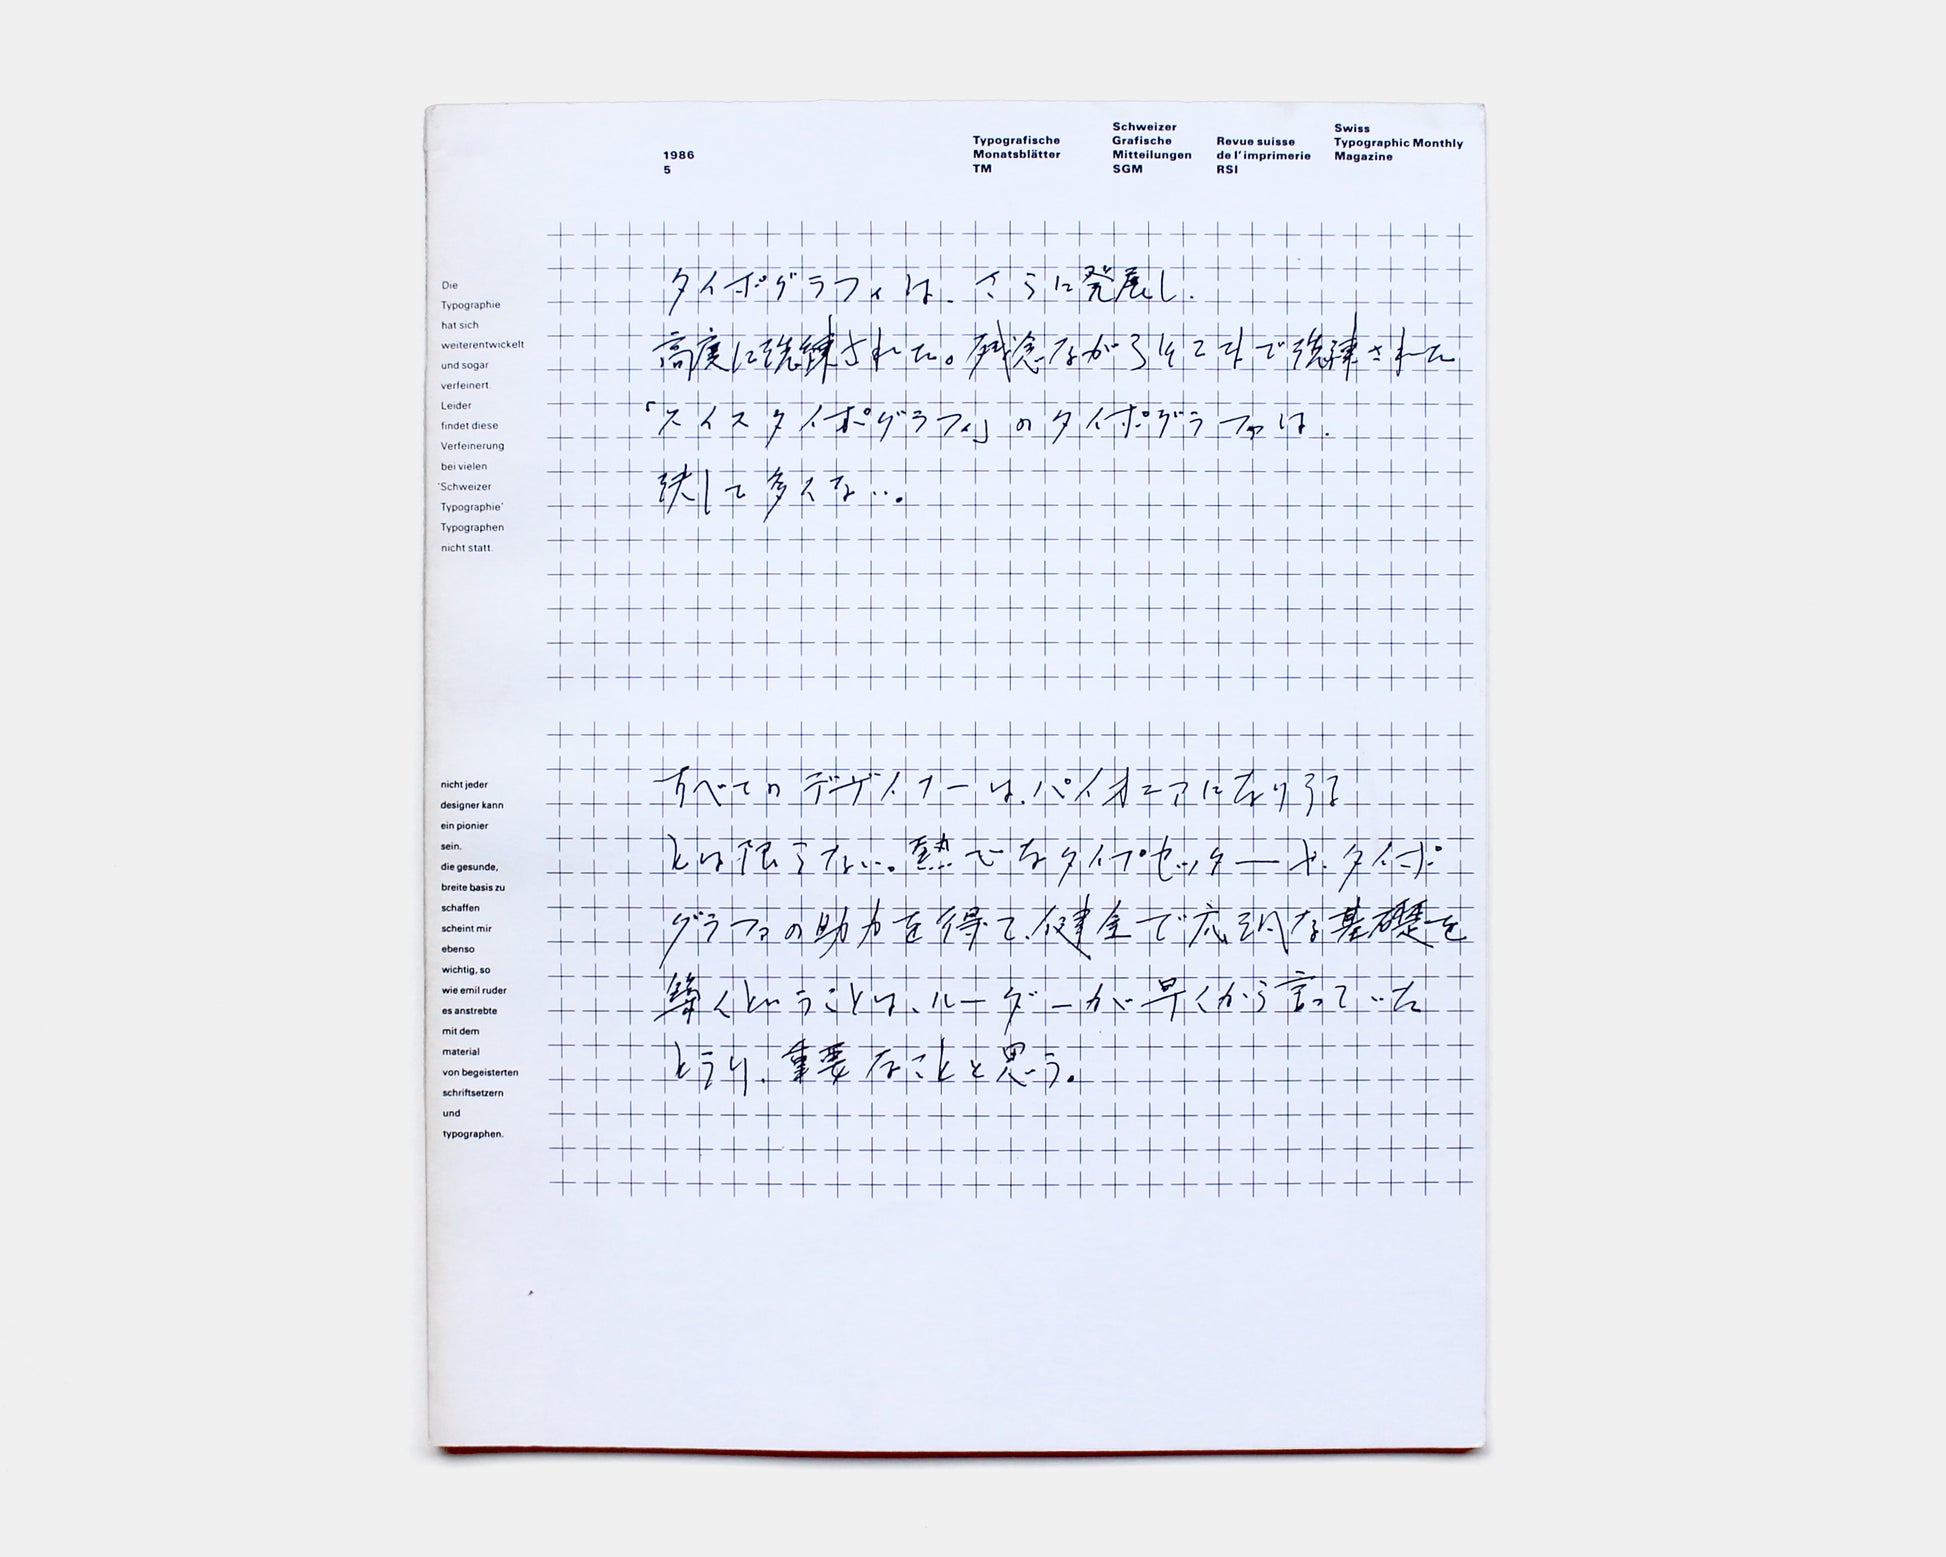 1986
5
Typografische
Monatsblätter
TM
Schweizer
Grafische
Mitteilungen
SGM
Revue suisse
de l'imprimerie
RSI
Swiss
Typographic Monthly
Magazine
Die
Typographie
hat sich
weiterentwickelt
und sogar
verfeinert.
Leider
findet diese
Verfeinerung
bei vielen
'Schweizer
Typographie'
Typographen
nicht statt.
タイポグラフィは、さらに発展し、
高度に洗練された。残念ながらそこまで洗練された
「スイスタイポグラフィ」のタイポグラファは、
決して多くない。
nicht jeder
designer kann
ein pionier
sein.
die gesunde,
breite basis zu
schaffen
scheint mir
ebenso
wichtig, so
wie emil ruder
es anstrebte
mit dem
material
von begeisterten
schriftsetzern
und
typographen.
すべてのデザイナーは、パイオニアになりうる
とは限らない。熱心なタイプセッターや、タイポ
グラファの助力を得て、健全で広汎な基礎を
築くということは、ルーダーが早くから言っていた
とうり、重要なことと思う。